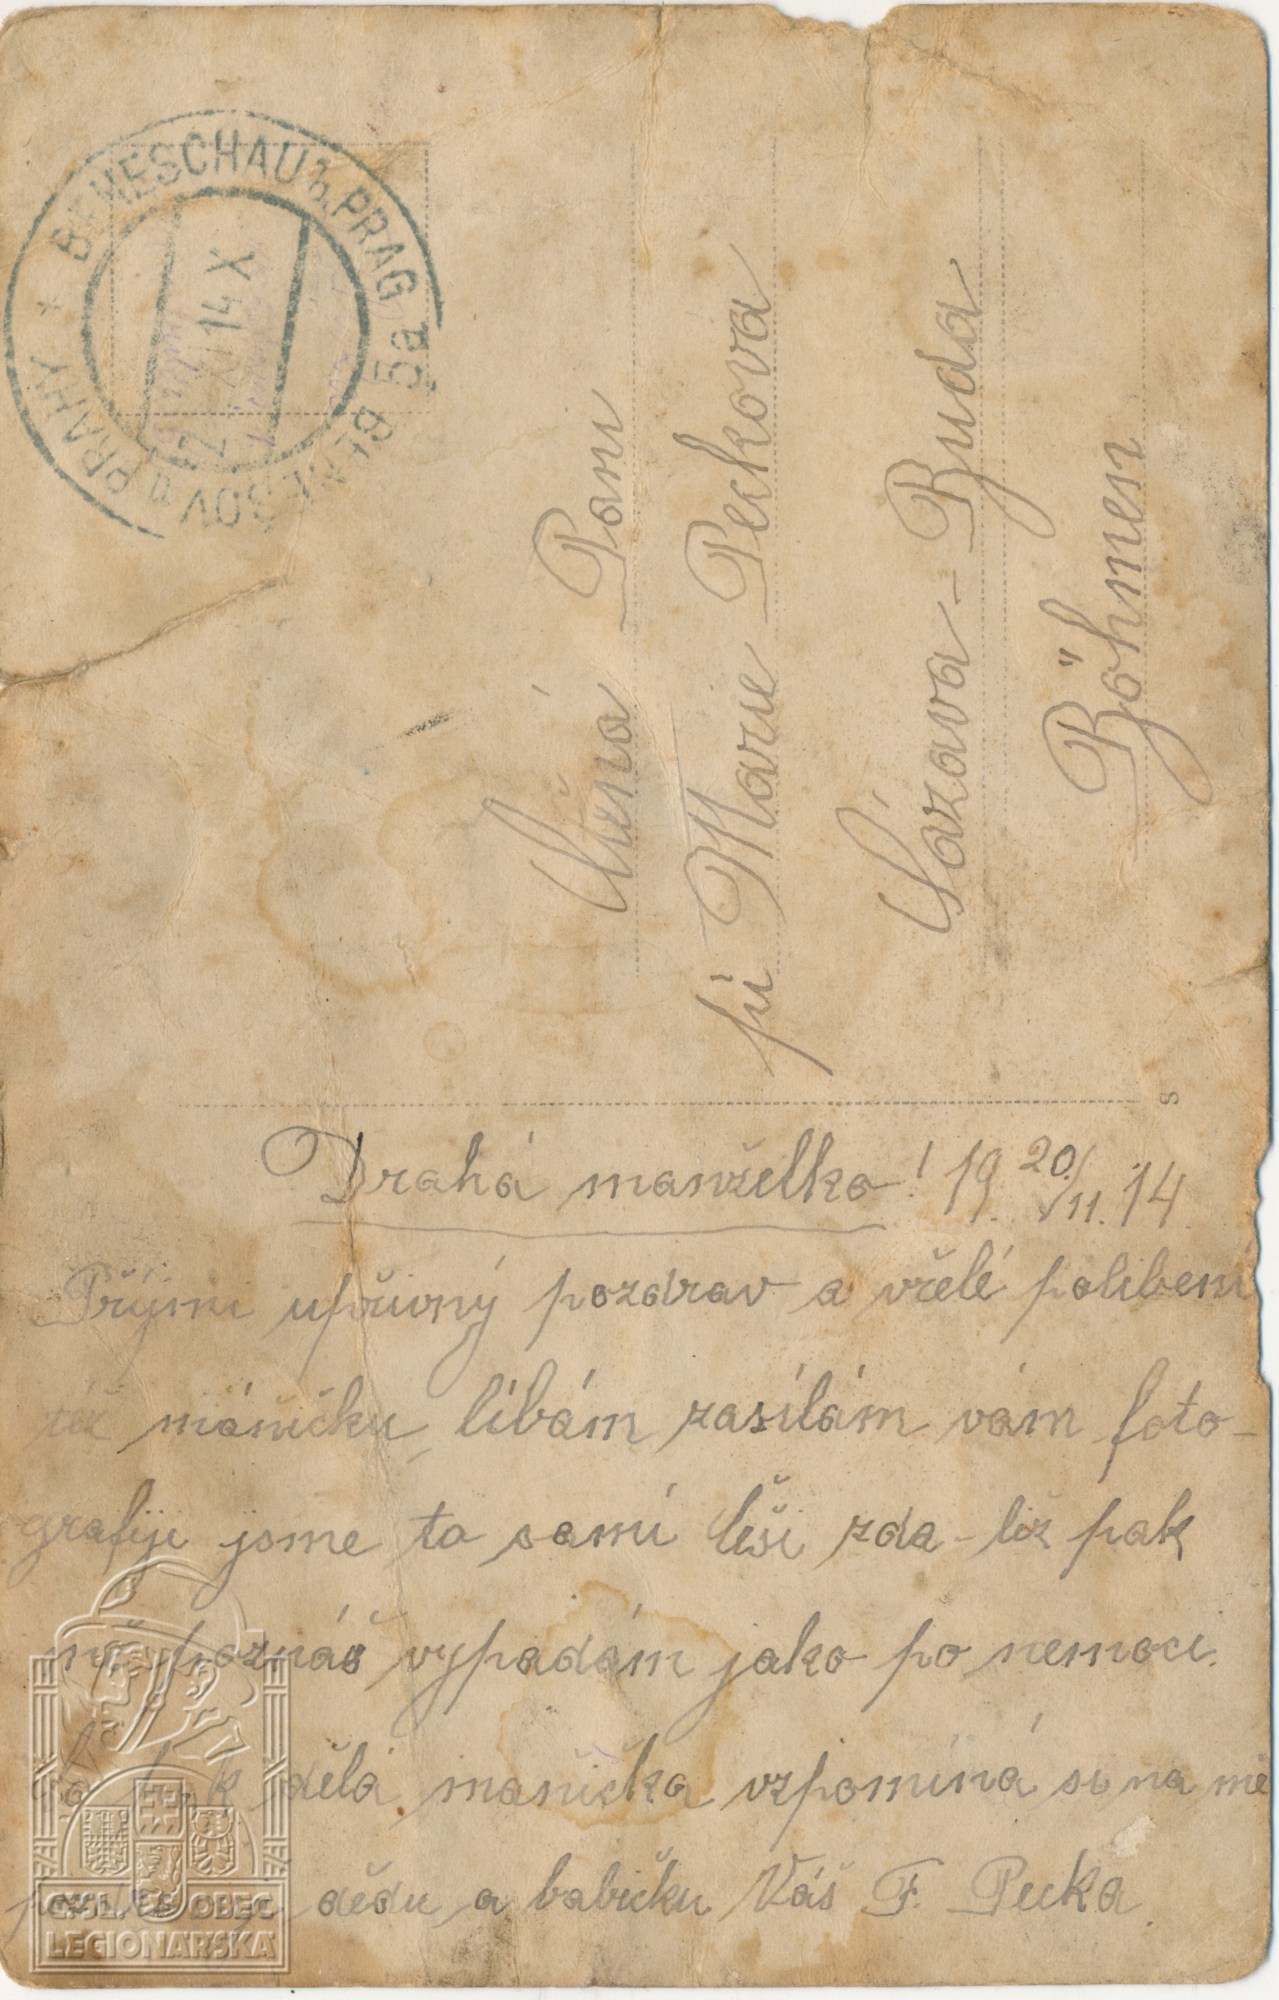 BENESCHAU b. PRAG
BENEŠOV u PRAHY
5a
14 X
Ctěná Paní
Marie Pecková
Sázava-Buda
Böhmen
S
Drahá manželko! 19 20/11. 14
Přijmi upřímný pozdrav a vřelé políbení
též máničku líbám zasílám vám foto-
grafije jsme to samí leši zda-liž pak
mě poznáš vypadám jako po nemoci.
dělá manička vzpomíná si na mě
dědu a babičku Váš F. Pecka.
ČSL. OBEC
LEGIONÁŘSKÁ